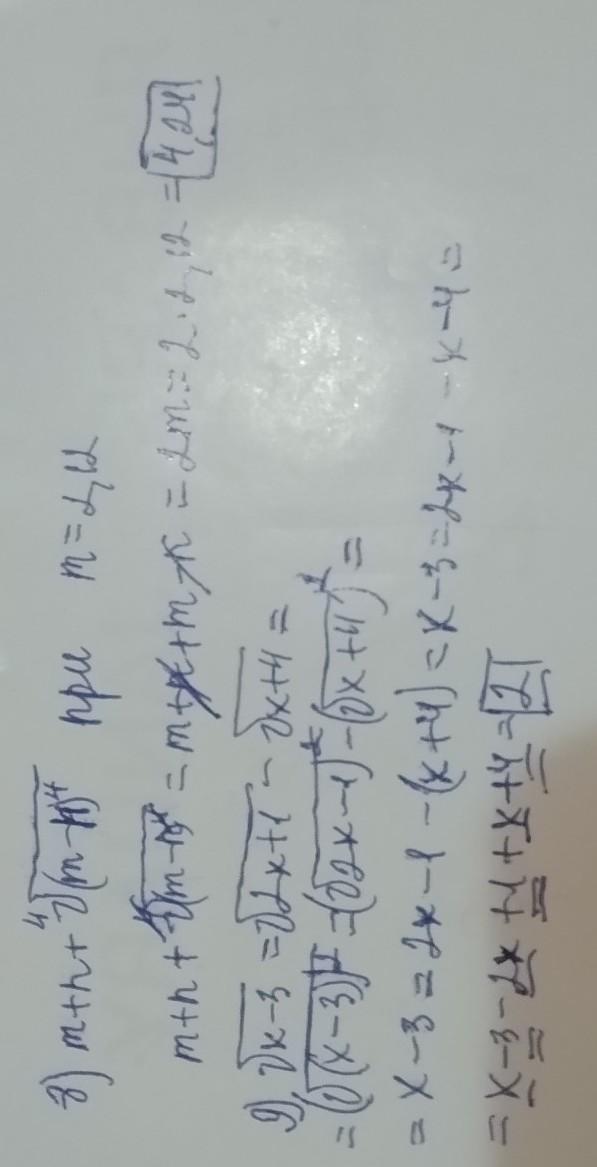 8) m+n+⁴√(m-n)⁴ при m=2,12
m+n+⁴√(m-n)⁴ = m+n+m-n = 2m = 2·2,12 = 4,24
9) √x-3 = √2x+1 - √x+4 =
= (√(x-3))² = (√2x-1)² - (√x+4)² =
= x-3 = 2x-1-(x+4) = x-3 = 2x-1-x-4 =
= x-3-2x+1+x+4 = 2